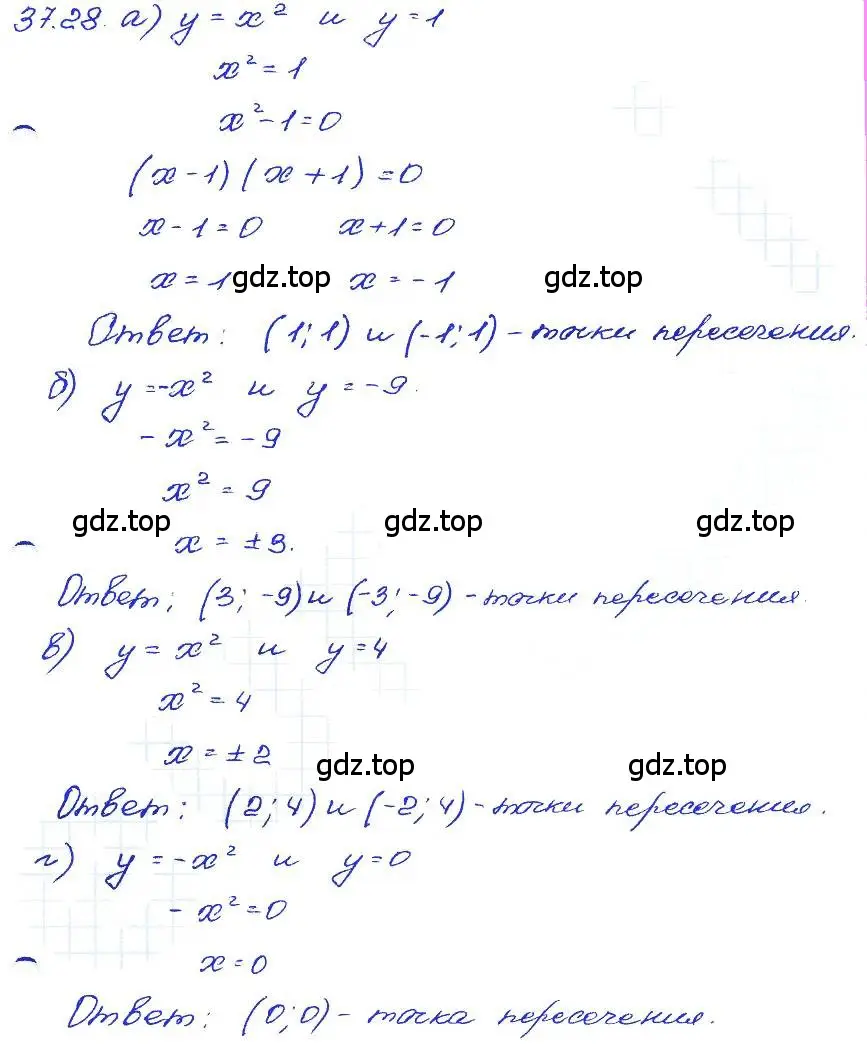 37.28. а) y = x² и y = 1
x² = 1
x² - 1 = 0
(x - 1)(x + 1) = 0
x - 1 = 0 x + 1 = 0
x = 1 gdz.top x = - 1 gdz.top
Ответ: (1; 1) и (-1; 1) - точки пересечения.
б) y = -x² и y = -9.
- x² = - 9
x² = 9
gdz.top gdz.top gdz.top
x = ± 3.
Ответ: (3; -9) и (-3; -9) - точки пересечения.
в) y = x² и y = 4
x² = 4
x = ± 2 gdz.top gdz.top
Ответ: (2; 4) и (-2; 4) - точки пересечения.
г) y = -x² и y = 0
- x² = 0
x = 0
Ответ: (0; 0) - точка пересечения.